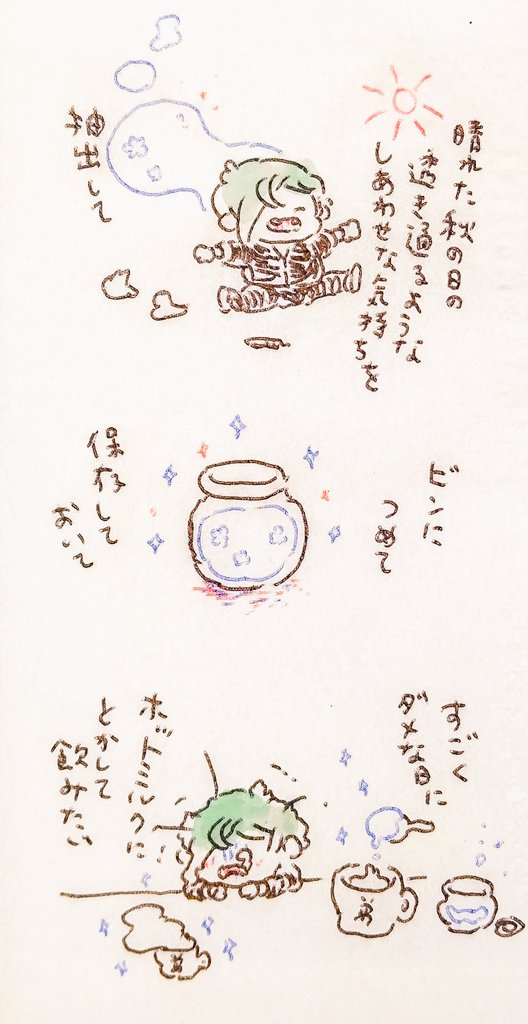 晴れた秋の日の
透き通るような
しあわせな気持ちを
抽出して
ビンに
つめて
保存して
おいて
すごく
ダメな日に
ホットミルクに
とかして
飲みたい